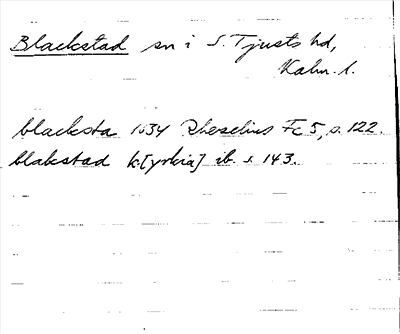 Blackstad sn i S. Tjusts hd,
Kalm. l.
blacksta 1634 Rhezelius Fc 5, s. 122.
blakstad k[yrkia] ib. s. 143.